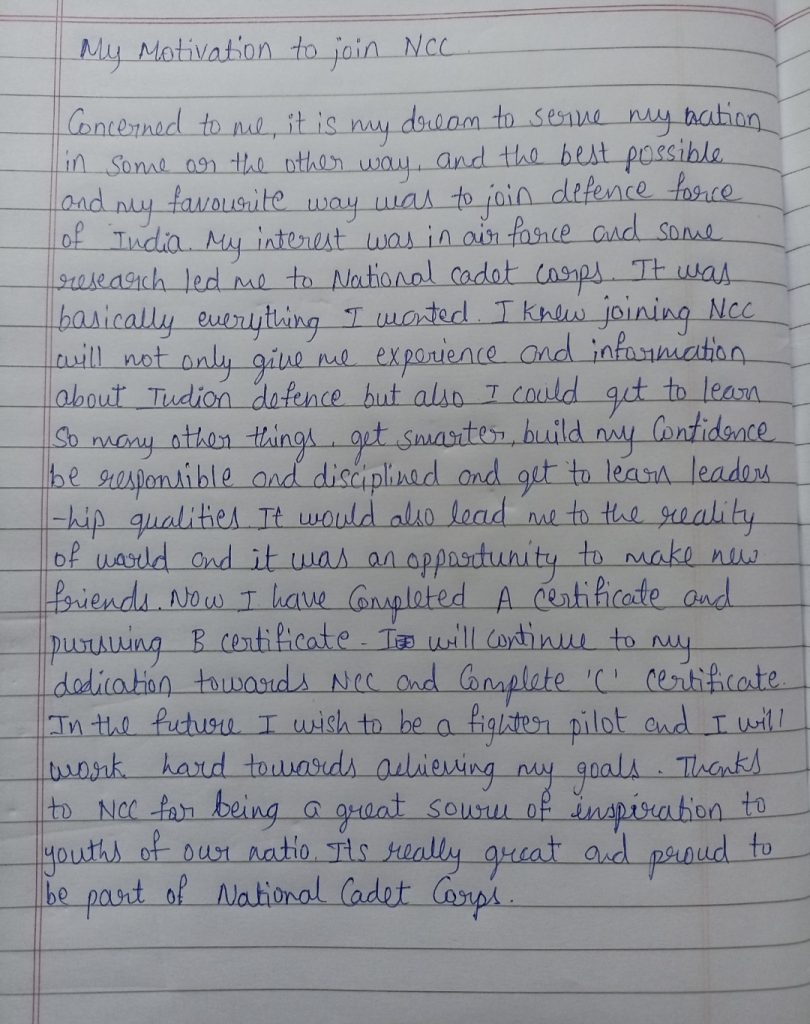 My Motivation to join NCC
Concerned to me, it is my dream to serve my nation
in some or the other way, and the best possible
and my favourite way was to join defence force
of India. My interest was in air force and some
research led me to National cadet corps. It was
basically everything I wanted. I knew joining NCC
will not only give me experience and information
about Indion defence but also I could get to learn
So many other things, get smarter, build my Confidence
be responsible and disciplined and get to learn leaders
-hip qualities. It would also lead me to the reality
of world and it was an opportunity to make new
friends. Now I have Completed A certificate and
pursuing B certificate - I will Continue to my
dedication towards NCC and Complete 'C' certificate.
In the future I wish to be a fighter pilot and I will
work hard towards achieving my goals. Thanks
to NCC for being a great source of inspiration to
youths of our natio. Its really great and proud to
be part of National Cadet Corps.